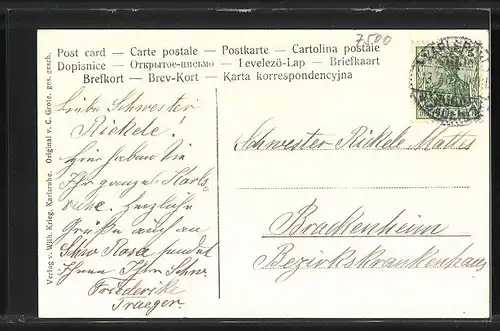 7500
Post card — Carte postale — Postkarte — Cartolina postale
Dopisnice — Открытое-письмо — Levelező-Lap — Briefkaart
Brefkort — Brev-Kort — Karta korrespondencyjna
Verlag v. Wilh. Krieg, Karlsruhe. Original v. C. Grote. ges. gesch.
Liebe Schwester
Rickele!
Hier haben Sie
Ihr ganzes Karls-
ruhe. Herzliche
Grüße auch an
Schw. Rosa sendet
Ihnen Ihre Schw.
Friederike
Traeger.
Schwester Rickele Mattis
Brackenheim
Bezirkskrankenhaus